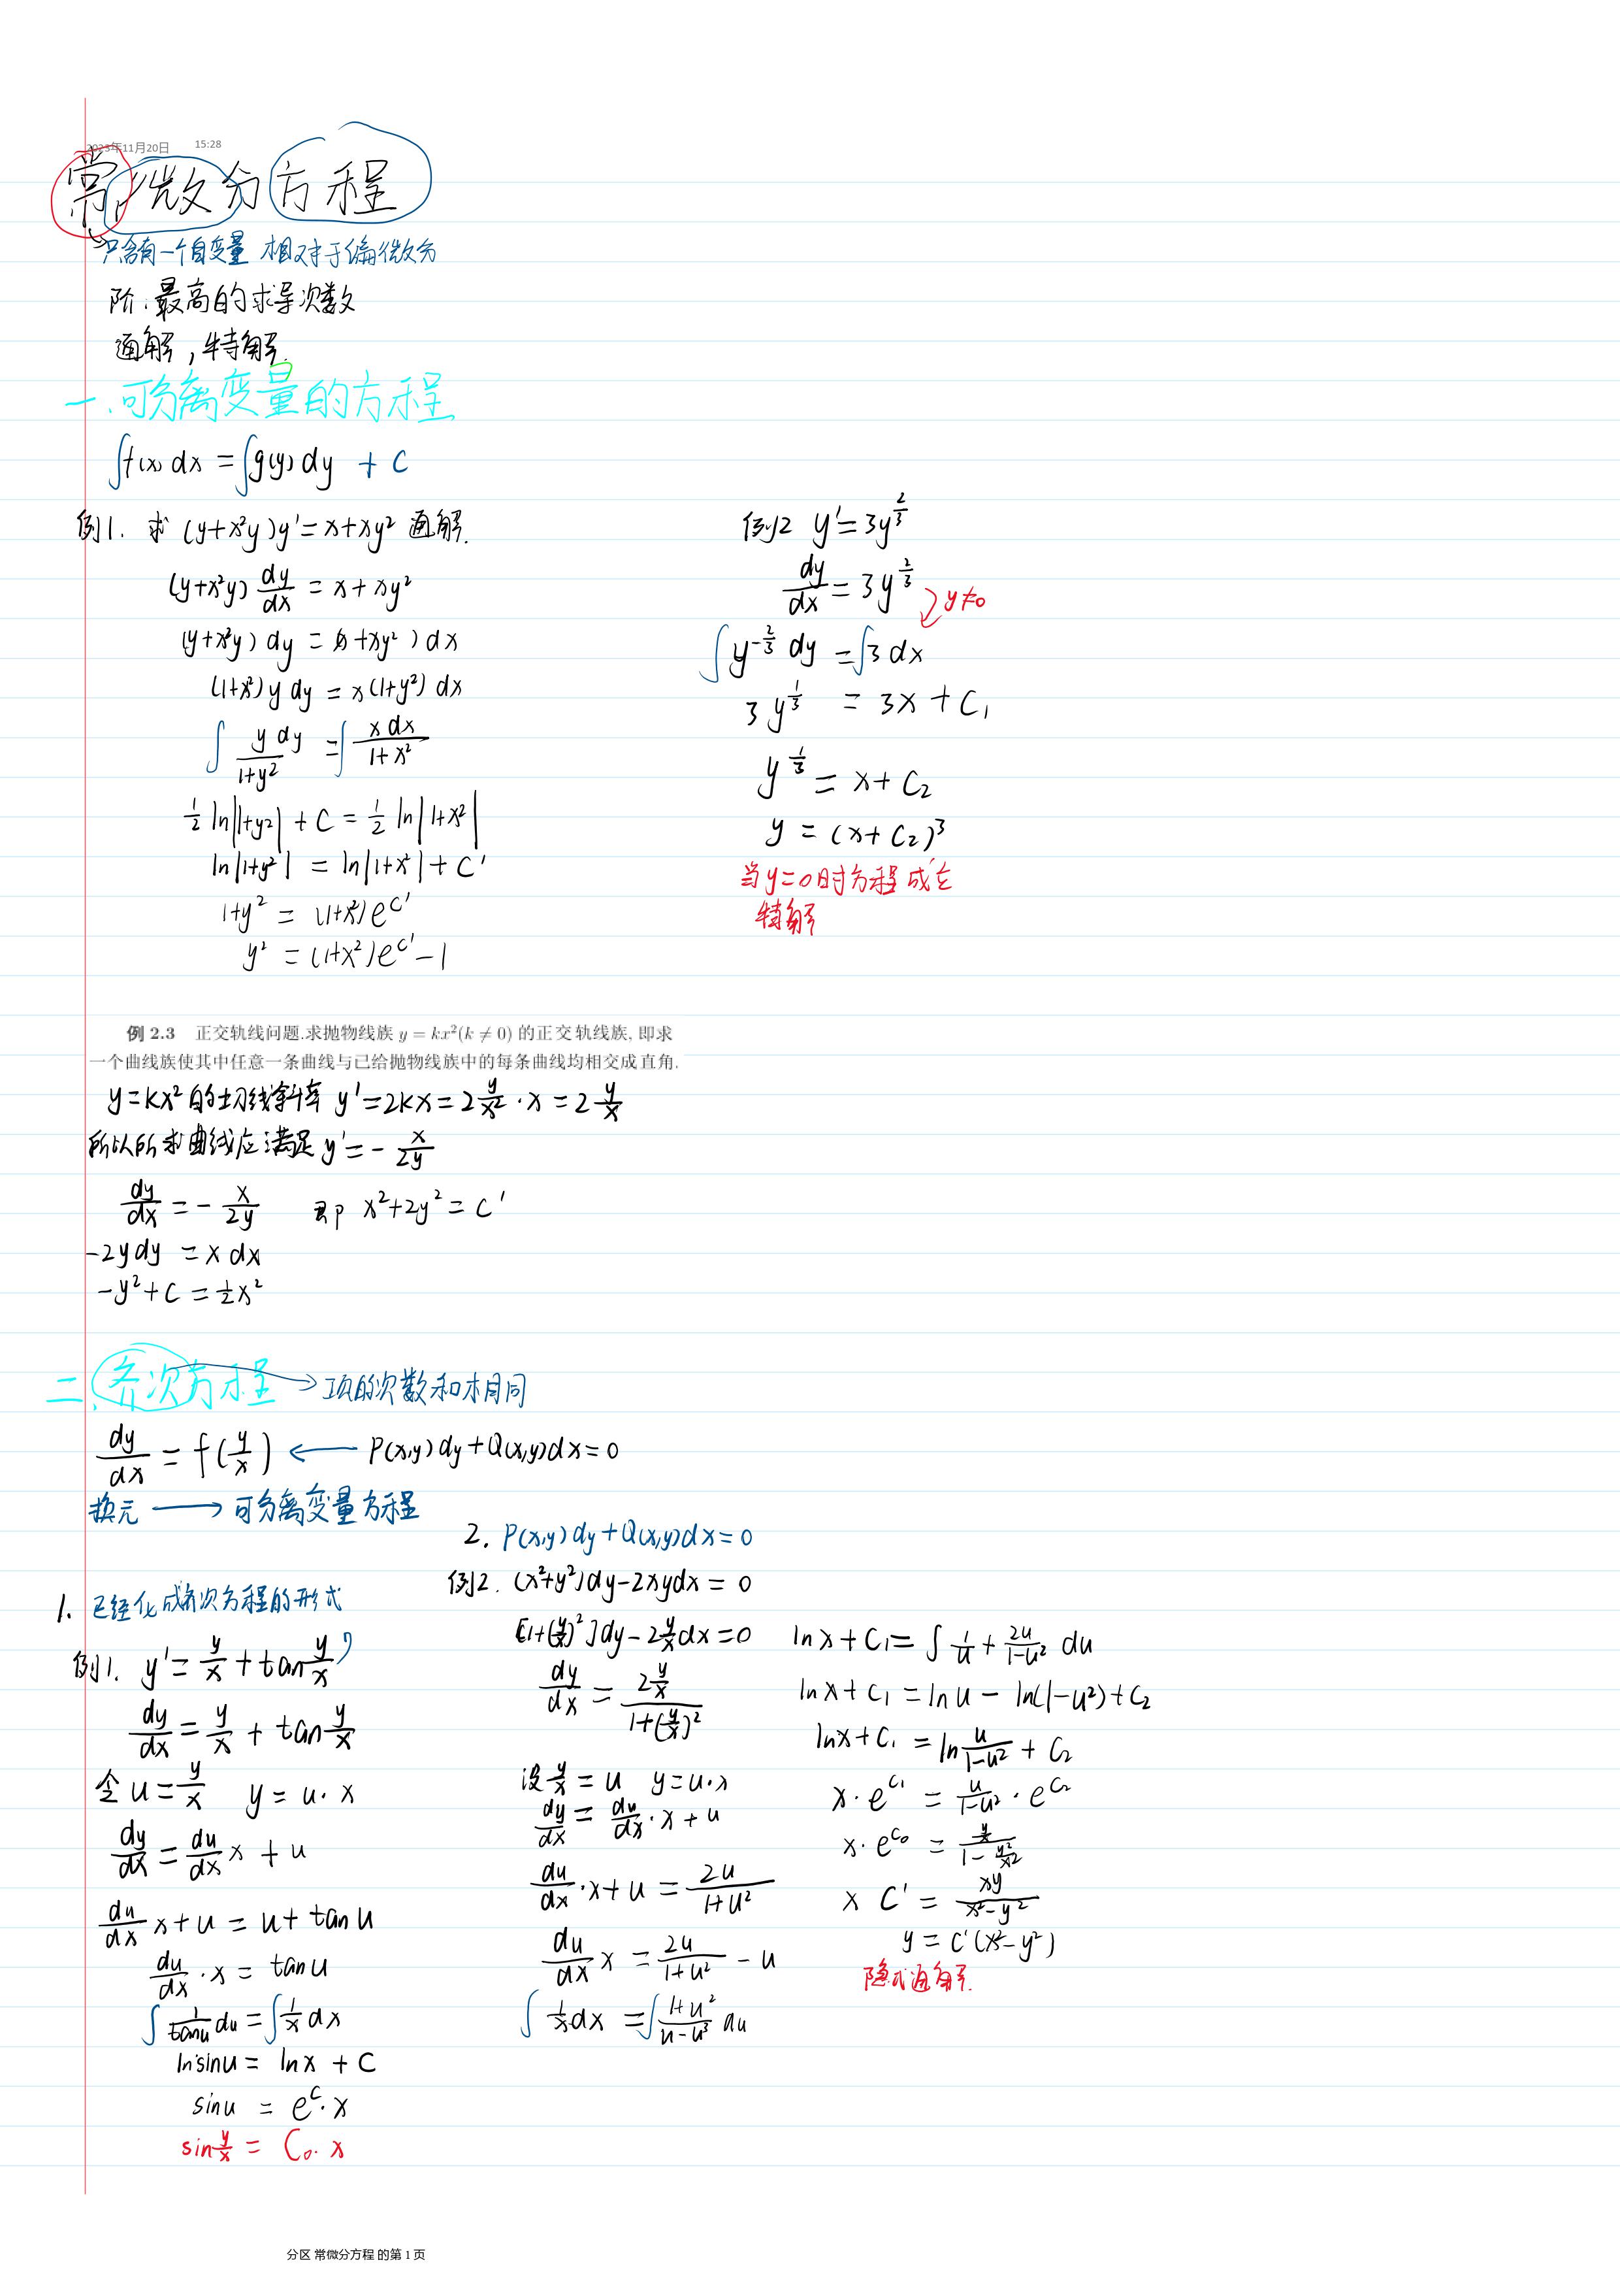 2023年11月20日 15:28
常微分方程
只含有一个自变量 相对于偏微分
阶:最高的求导次数
通解,特解.
一.可分离变量的方程
∫f(x)dx=∫g(y)dy + C
例1. 求 (y+x²y)y'=x+xy² 通解.
(y+x²y) dy/dx = x+xy²
(y+x²y)dy = (x+xy²)dx
(1+x²)y dy = x(1+y²)dx
∫ y dy/(1+y²) = ∫ x dx/(1+x²)
½ ln|1+y²| + C = ½ ln|1+x²|
ln|1+y²| = ln|1+x²| + C'
1+y² = (1+x²)e^C'
y² = (1+x²)e^C' - 1
例2 y'=3y^(2/3)
dy/dx = 3y^(2/3)
y≠0
∫ y^(-2/3) dy = ∫3 dx
3y^(1/3) = 3x + C₁
y^(1/3) = x + C₂
y = (x+C₂)³
当y=0时方程成立
特解
例 2.3 正交轨线问题.求抛物线族 y = kx²(k ≠ 0) 的正交轨线族, 即求
一个曲线族使其中任意一条曲线与已给抛物线族中的每条曲线均相交成直角.
y=kx²的切线斜率 y'=2kx=2 y/x²·x=2 y/x
所以所求曲线应满足 y'=- x/2y
dy/dx = - x/2y 即 x²+2y²=C'
-2ydy = x dx
-y²+C = ½x²
二.齐次方程 → 项的次数和相同
dy/dx = f(y/x) ← P(x,y)dy+Q(x,y)dx=0
换元 → 可分离变量方程
1. 已经化成齐次方程的形式
例1. y'= y/x + tan y/x
dy/dx = y/x + tan y/x
令 u= y/x y=u·x
dy/dx = du/dx x + u
du/dx x+u = u+tanu
du/dx·x = tanu
∫ 1/tanu du = ∫ 1/x dx
lnsinu = lnx + C
sinu = e^C·x
sin y/x = C₀·x
2. P(x,y)dy+Q(x,y)dx=0
例2. (x²+y²)dy-2xydx=0
[1+(y/x)²]dy-2 y/x dx=0
dy/dx = 2 y/x / (1+(y/x)²)
设 y/x = u y=u·x
dy/dx = du/dx·x+u
du/dx·x+u = 2u/(1+u²)
du/dx x = 2u/(1+u²) - u
∫ 1/x dx = ∫ (1+u²)/(u-u³) du
lnx+C₁=∫ 1/u + 2u/(1-u²) du
lnx+C₁=lnu-ln(1-u²)+C₂
lnx+C₁=ln u/(1-u²) + C₂
x·e^C₁ = u/(1-u²)·e^C₂
x·e^C₀ = (y/x)/(1-y²/x²)
x C' = xy/(x²-y²)
y = C'(x²-y²)
隐式通解.
分区 常微分方程 的第 1 页